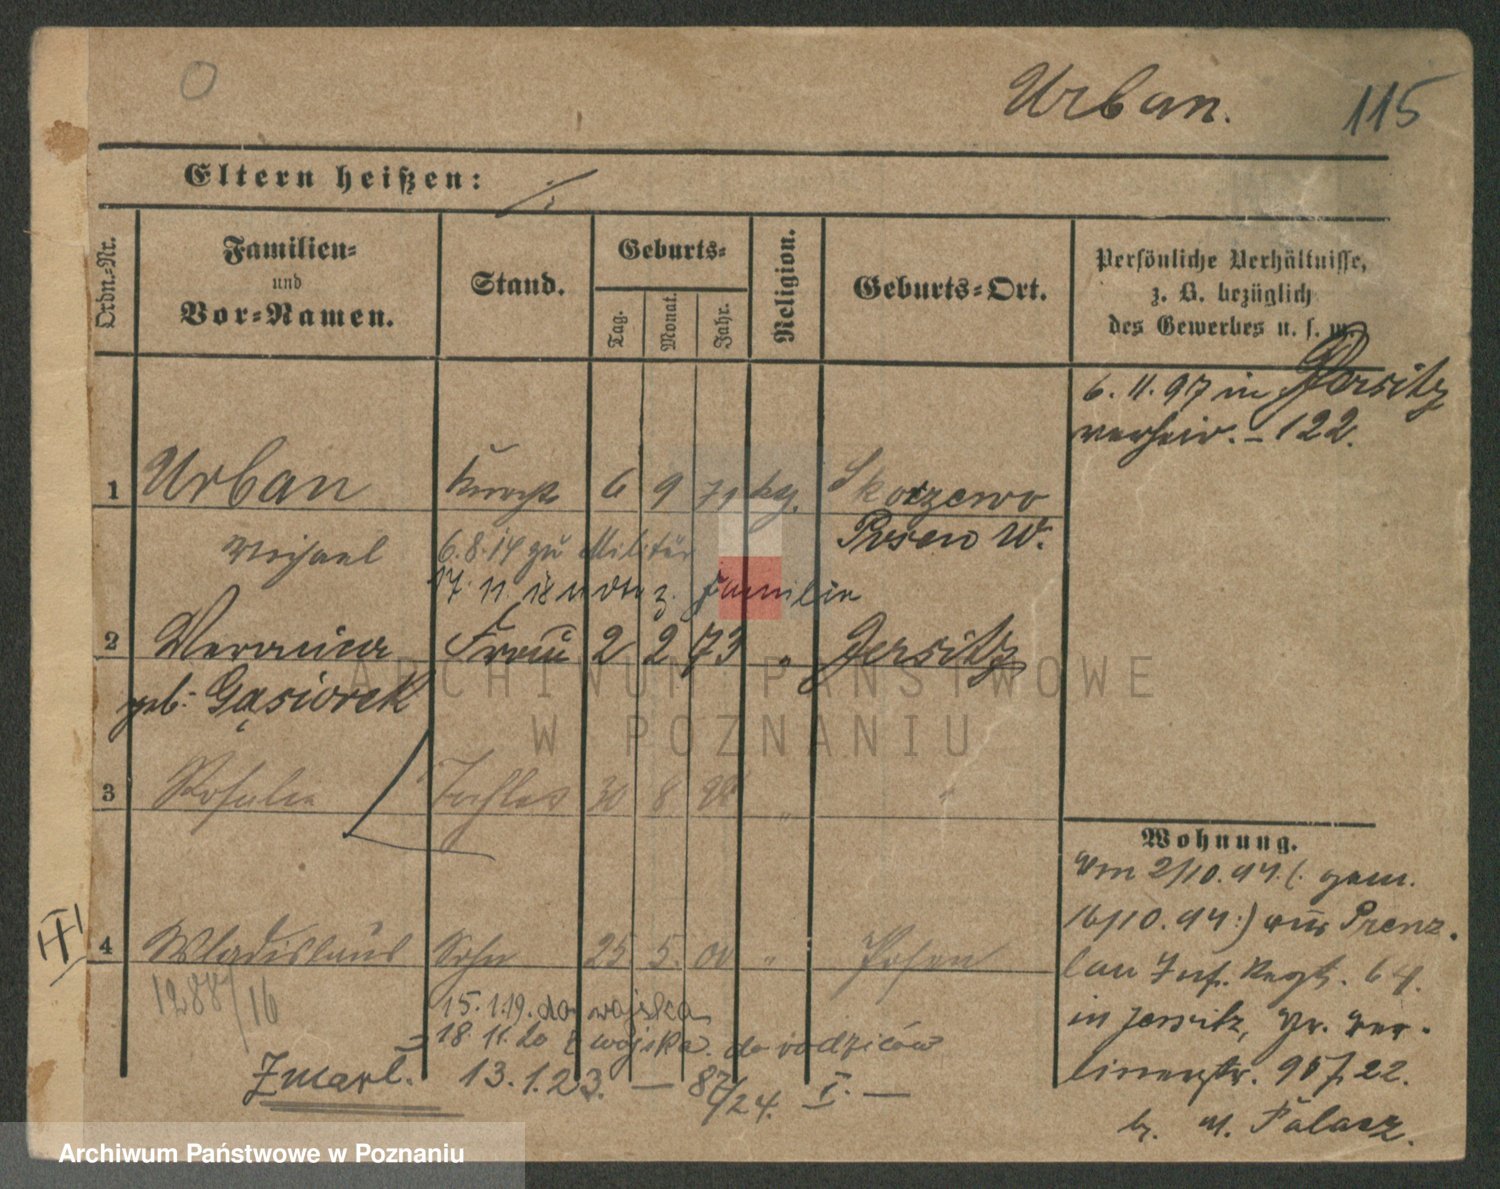 Urban. 115
Eltern heißen: ./.
Ordn.-Nr.
Familien-
und
Vor-Namen.
Stand.
Geburts-
Tag.
Monat.
Jahr.
Religion.
Geburts-Ort.
Persönliche Verhältnisse,
z. B. bezüglich
des Gewerbes u. s. w.
6. 11. 97 in Jersitz
verheir. – 122.
1 Urban Knecht 6 9 71 kg. Skorzewo
Michael Posen W.
6.8.14 zu Militär
17. 11 18 z. Familie
2 Veronica Frau 2 2 73 " Jersitz
geb. Gąsiorek
3 Rosalie Tochter 30 8 98 " "
4 Wladislaus Sohn 25 5. 00 " Posen
1288/16
15.1.19. do wojska
18 11. 20 z wojska do rodziców
Zmarł. 13.1.23. — 87/24. I. —
Wohnung.
Vom 2/10.94. (. gem.
16/10.94:) aus Prenz.
lau Inf. Regt. 64.
in Jersitz, Gr. Ber-
linerstr. 22.
b. M. Palacz.
ARCHIWUM PAŃSTWOWE
W POZNANIU
Archiwum Państwowe w Poznaniu